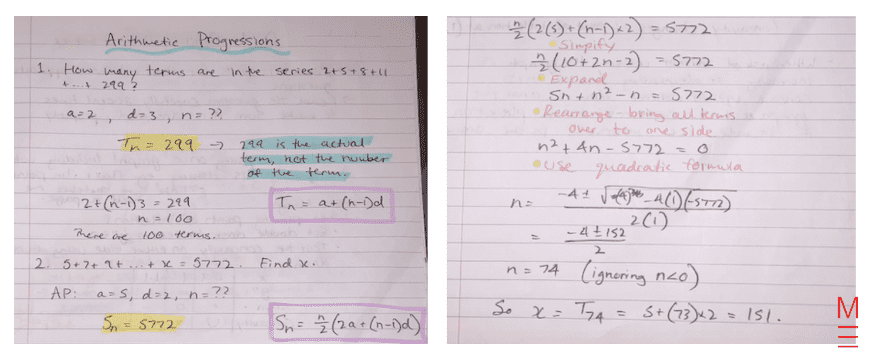 Arithmetic Progressions
1. How many terms are in the series 2+5+8+11
+ ... + 299?
a=2, d=3, n=??
Tn = 299 → 299 is the actual
term, not the number
of the term.
2+(n-1)3 = 299
Tn = a+(n-1)d
n = 100
There are 100 terms.
2. 5+7+9+ ... + x = 5772. Find x.
AP: a=5, d=2, n=??
Sn = 5772
Sn = n/2 (2a+(n-1)d)
n/2 (2(5)+(n-1)×2) = 5772
Simpify
n/2 (10+2n-2) = 5772
Expand
5n + n² - n = 5772
Rearrange - bring all terms
over to one side
n² + 4n - 5772 = 0
Use quadratic formula
n = -4 ± √(4)² - 4(1)(-5772) / 2(1)
= -4 ± 152 / 2
n = 74 (ignoring n<0)
So x = T74 = 5+(73)×2 = 151.
M